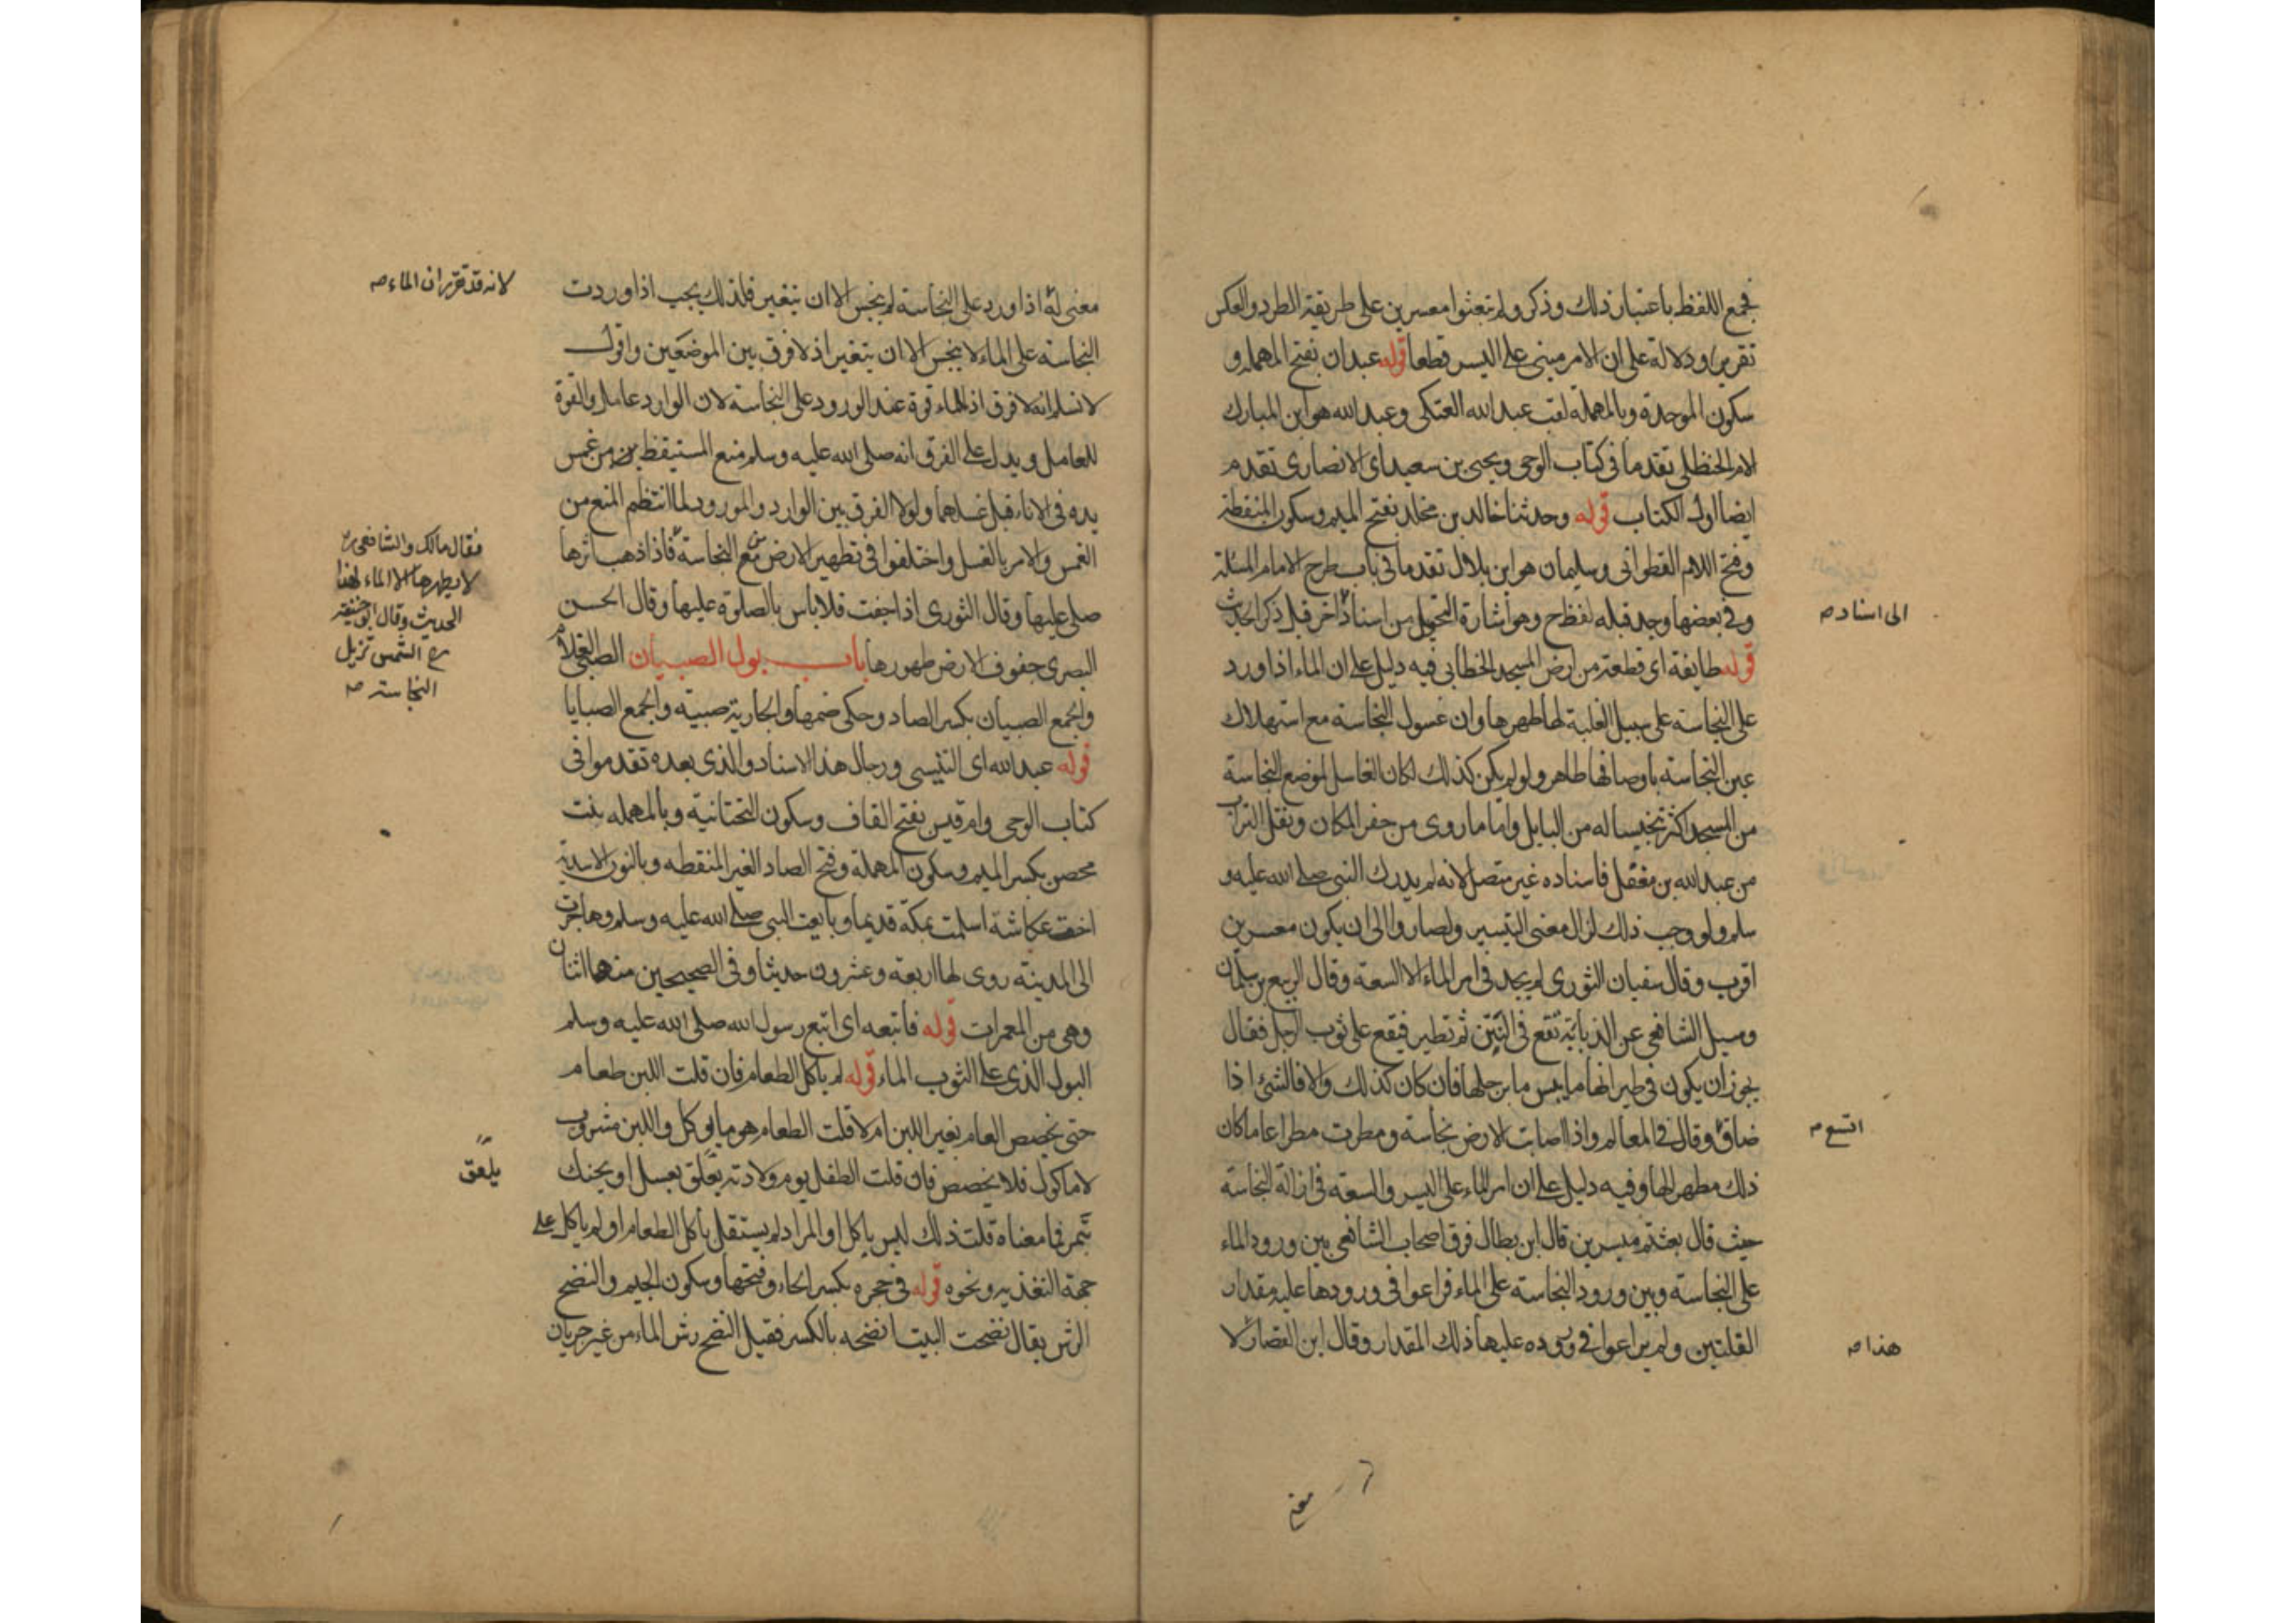 فجمع اللفظ باعتبار ذلك وذكر ولم تبعثوا معسرين على طريقة الطرد والعكس
تقريرا ودلالة على ان الامر مبنى على اليسر قطعا قوله عبدان بفتح المهملة و
سكون الموحدة وبالمهملة لقب عبد الله العتكى وعبد الله هو ابن المبارك
الحنظلى تقدما فى كتاب الوحى ويحيى بن سعيد اى الانصارى تقدم
ايضا اول الكتاب قوله وحدثنا خالد بن مخلد بفتح الميم وسكون المنقطة
وفتح اللام القطوانى وسليمان هو ابن بلال تقدما فى باب طرح الامام المسئلة
وفى بعضها وجد قبله لفظ ح وهو اشارة التحويل من اسناد اخر قبل ذكر الحديث
الى اسناد صح
قوله طايفة اى قطعة من ارض المسجد الخطابى فيه دليل على ان الماء اذا ورد
على النجاسة على سبيل الغلبة لها طهرها وان غسول النجاسة مع استهلاك
عين النجاسة باوصافها طاهر ولو لم يكن كذلك لكان الغاسل لموضع النجاسة
من المسجد اكثر تنجيسا له من البايل واما ما روى من حفر المكان ونقل التراب
من عبد الله بن مغفل فاسناده غير متصل لانه لم يدرك النبى صلى الله عليه و
سلم ولو وجب ذلك لزال معنى التيسير ولصاروا الى ان يكون معسرين
اقرب وقال سفيان الثورى لم يجد فى امر الماء الا السعة وقال الربيع بن سلمان
وسيل الشافعى عن الذبابة تقع فى النتن ثم تطير فيقع على ثوب الرجل فقال
يجوز ان يكون فى طيرانها ما ييبس ما برجلها فان كان كذلك والا فالشئ اذا
ضاق وقال فى المعالم واذا اصابت الارض نجاسة ومطرت مطرا عاما كان
اتسع صح
ذلك مطهرا لها وفيه دليل على ان امر الماء على اليسر والسعة فى ازالة النجاسة
حيث قال بعثتم ميسرين قال ابن بطال فرق اصحاب الشافعى بين ورود الماء
على النجاسة وبين ورود النجاسة على الماء فراعوا فى ورودها عليه مقدار
القلتين ولم يراعوا فى وروده عليها ذلك المقدار وقال ابن القصار لا
هذا صح
معنى له اذا ورد على النجاسة لم ينجس الا ان يتغير فلذلك يجب اذا وردت
لانه قد تقرر ان الماء صح
النجاسة على الماء لا ينجس الا ان يتغير اذ لا فرق بين الموضعين واقول
لا نسلم انه لا فرق اذ للماء قوة عند الورود على النجاسة لان الوارد عامل والقوة
للعامل ويدل على الفرق انه صلى الله عليه وسلم منع المستيقظ من غمس
يده فى الاناء قبل غسلهما ولولا الفرق بين الوارد والمورود لما انتظم المنع من
الغمس والامر بالغسل واختلفوا فى تطهير الارض من النجاسة فاذا ذهب اثرها
فقال مالك والشافعى
لا يطهرها الا الماء لهذا
الحديث وقال ابو حنيفة
رح الشمس تزيل
النجاسة صح
صلى عليها وقال الثورى اذا جفت فلا باس بالصلوة عليها وقال الحسن
البصرى جفوف الارض طهورها باب بول الصبيان الصبى الغلام
والجمع الصبيان بكسر الصاد وحكى ضمها والجارية صبية والجمع الصبايا
قوله عبد الله اى التنيسى ورجال هذا الاسناد والذى بعده تقدموا فى
كتاب الوحى وام قيس بفتح القاف وسكون التحتانية وبالمهملة بنت
محصن بكسر الميم وسكون المهملة وفتح الصاد الغير المنقطه وبالنون الاسدية
اخت عكاشة اسلمت بمكة قديما وبايعت النبى صلى الله عليه وسلم وهاجرت
الى المدينة روى لها اربعة وعشرون حديثا وفى الصحيحين منها اثنان
وهى من المعمرات قوله فاتبعه اى اتبع رسول الله صلى الله عليه وسلم
البول الذى على الثوب الماء قوله لم ياكل الطعام فان قلت اللبن طعام
حتى يخصص العام بغير اللبن ام لا قلت الطعام هو ما يوكل واللبن مشروب
لا ماكول فلا يخصص فان قلت الطفل يوم ولادته يعلق بعسل او يحنك
يلعق
بتمر فما معناه قلت ذلك ليس باكل او المراد لم يستقل باكل الطعام او لم ياكل على
جهة التغذيه ونحوه قوله فى حجره بكسر الحاء وفتحها وسكون الجيم والنضح
الرش يقال نضحت البيت انضحه بالكسر فقيل النضح رش الماء من غير جريان